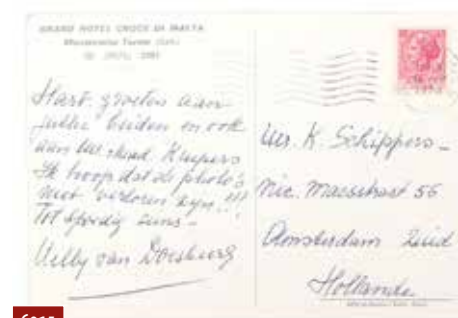 GRAND HOTEL CROCE DI MALTA
Montecatini Terme
Hart. groeten aan
jullie beiden en ook
aan Kuipers
Ik hoop dat de photo's
niet verloren zijn..!!
Tot spoedig eens -
Nelly van Doesburg
Mr. K. Schippers -
Nic. Maesstraat 56
Amsterdam Zuid
Hollande